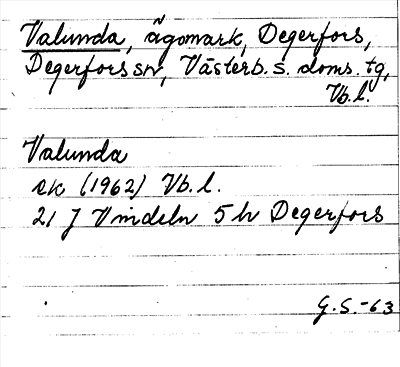 Valunda, ägomark, Degerfors,
Degerfors sn, Västerb. s. doms. tg,
Vb. l.
Valunda
ek (1962) Vb. l.
21 J Vindeln 5 h Degerfors
G. S. -63